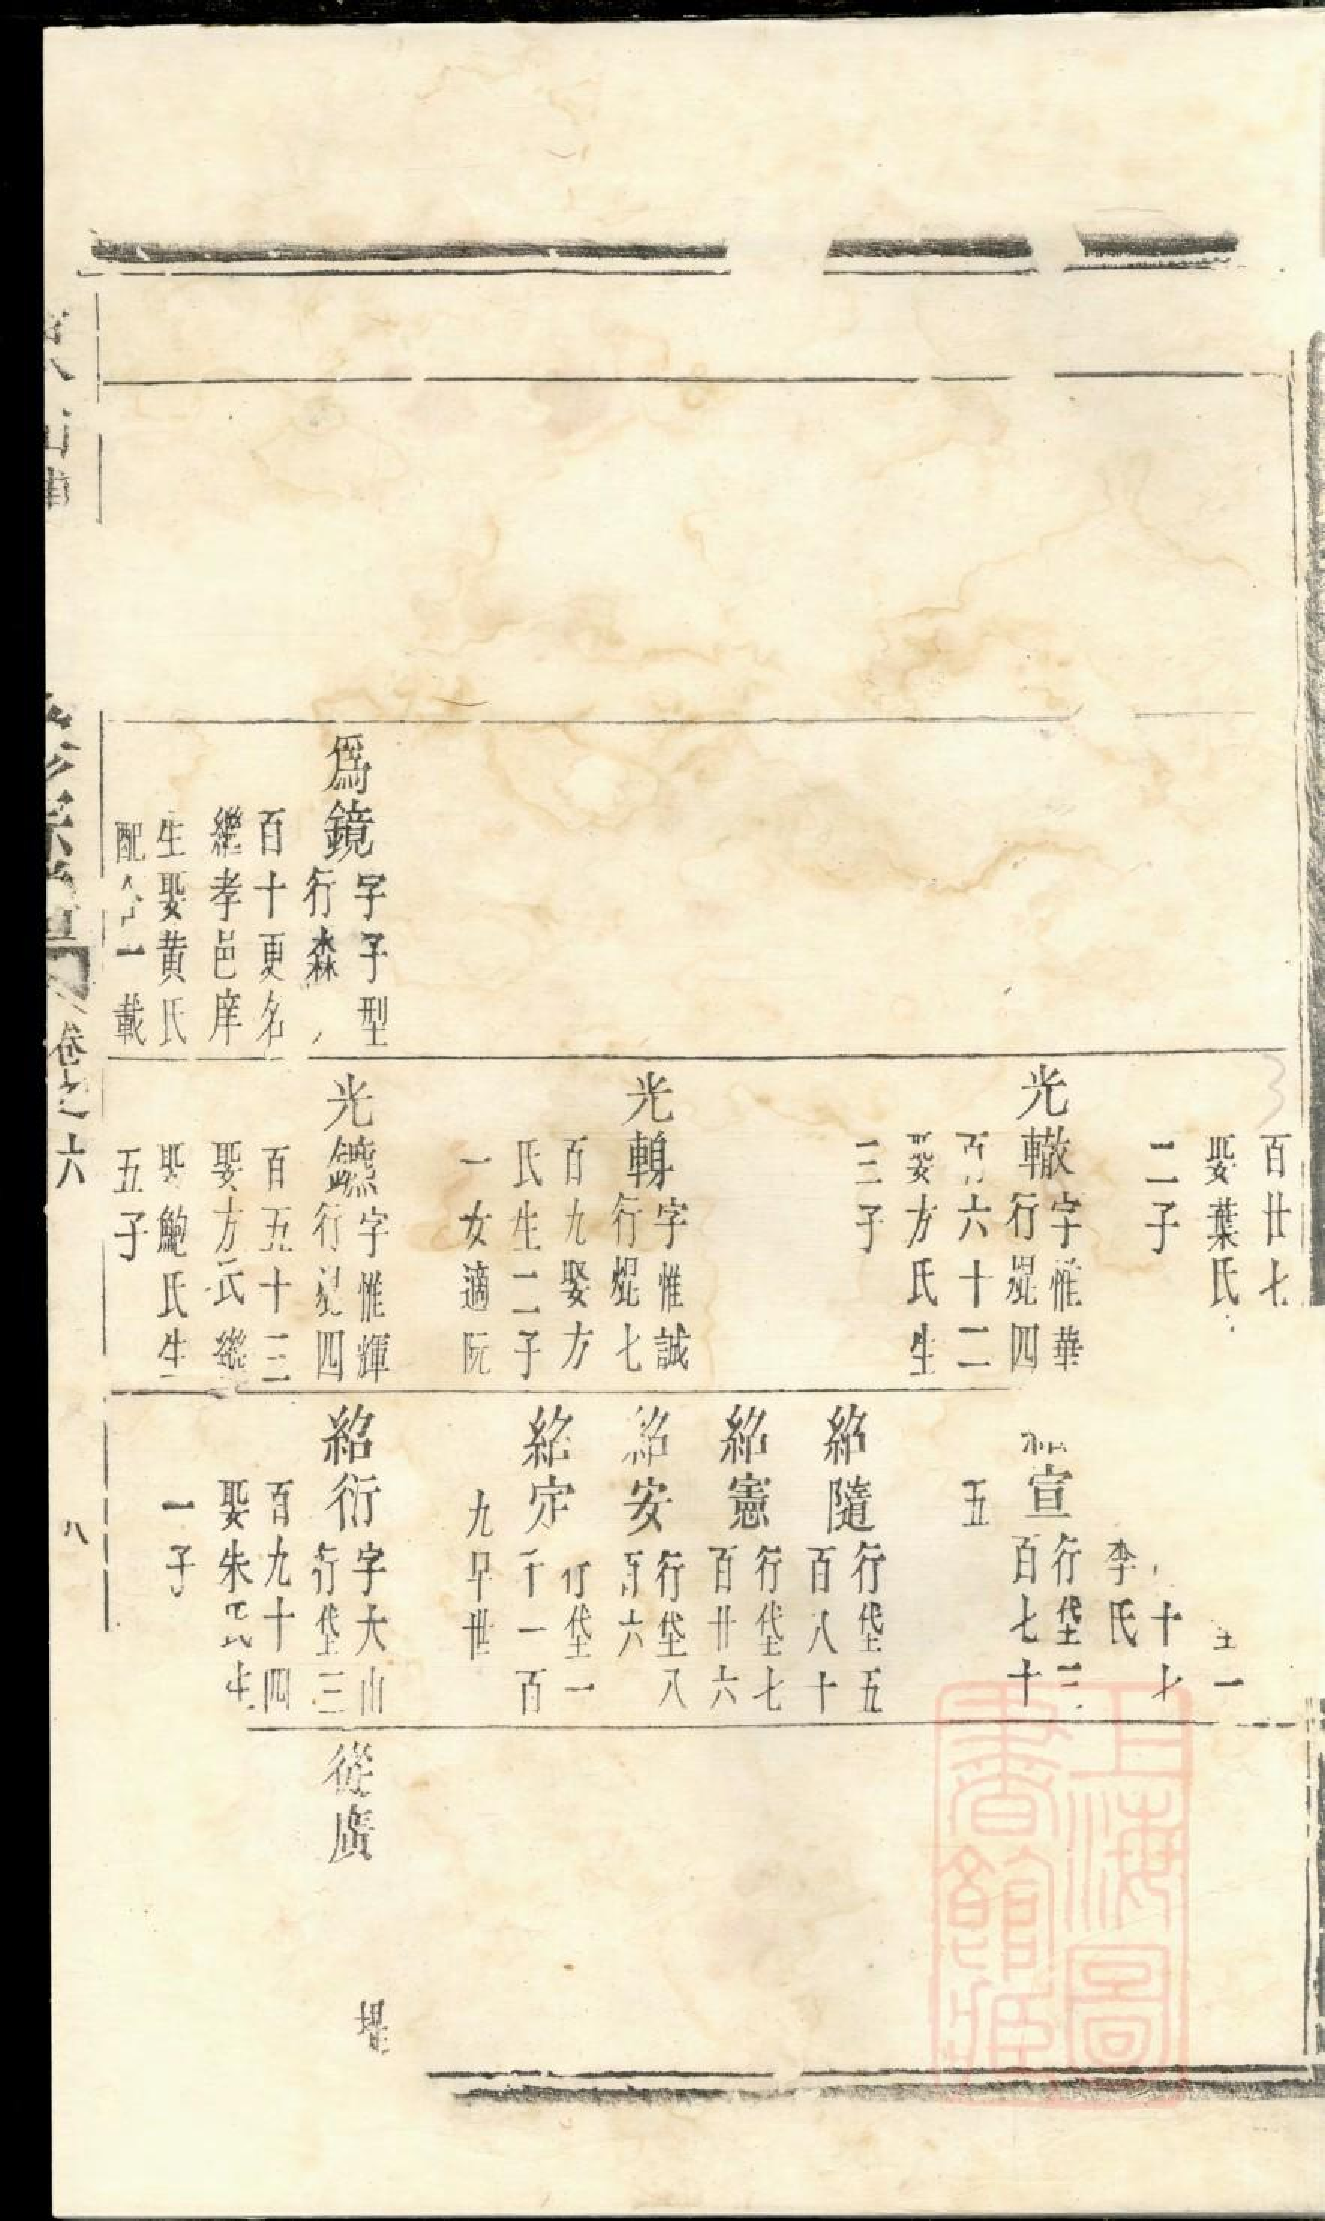 百廿七
娶葉氏
二子
光轍字惟華
行焜四
百六十二
娶方氏生
三子
字惟誠
行焜七
百九娶方
氏生二子
一女適阮
為鏡字子型
行森
百十更名
繼孝邑庠
生娶黃氏
配合一載
字惟輝
行焜四
百五十三
娶方氏繼
娶鮑氏生
五子
十七
李氏
宣行垡三
百七十
五
紹隨行垡五
百八十
紹憲行垡七
百廿六
紹安行垡八
百六
紹定行垡一
千一百
九早世
紹衍字大山
行垡三
百九十四
娶朱氏生
一子
從廣
卷之六
八
上海圖
書館藏